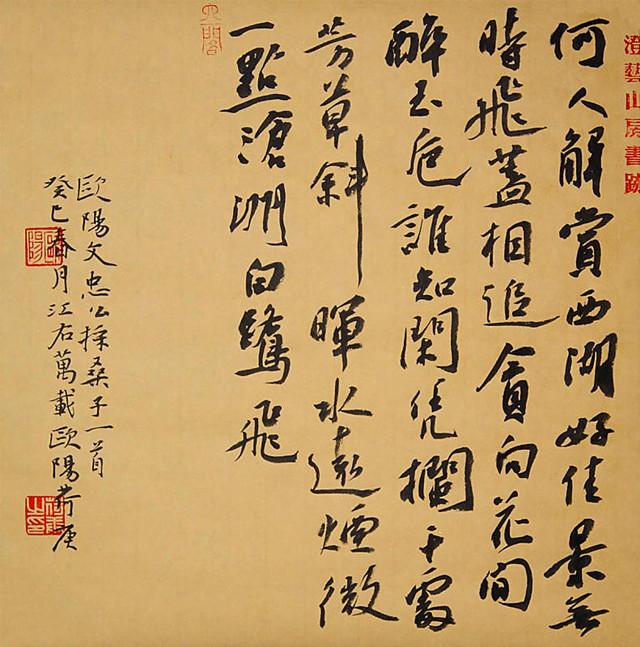 澄藝山房書跡
何人解賞西湖好佳景無
時飛蓋相追貪向花間
醉玉卮誰知閑凭欄干處
芳草斜暉水遠煙微
一點滄洲白鷺飛
歐陽文忠公採桑子一首
癸巳春月江右萬載歐陽荷庚